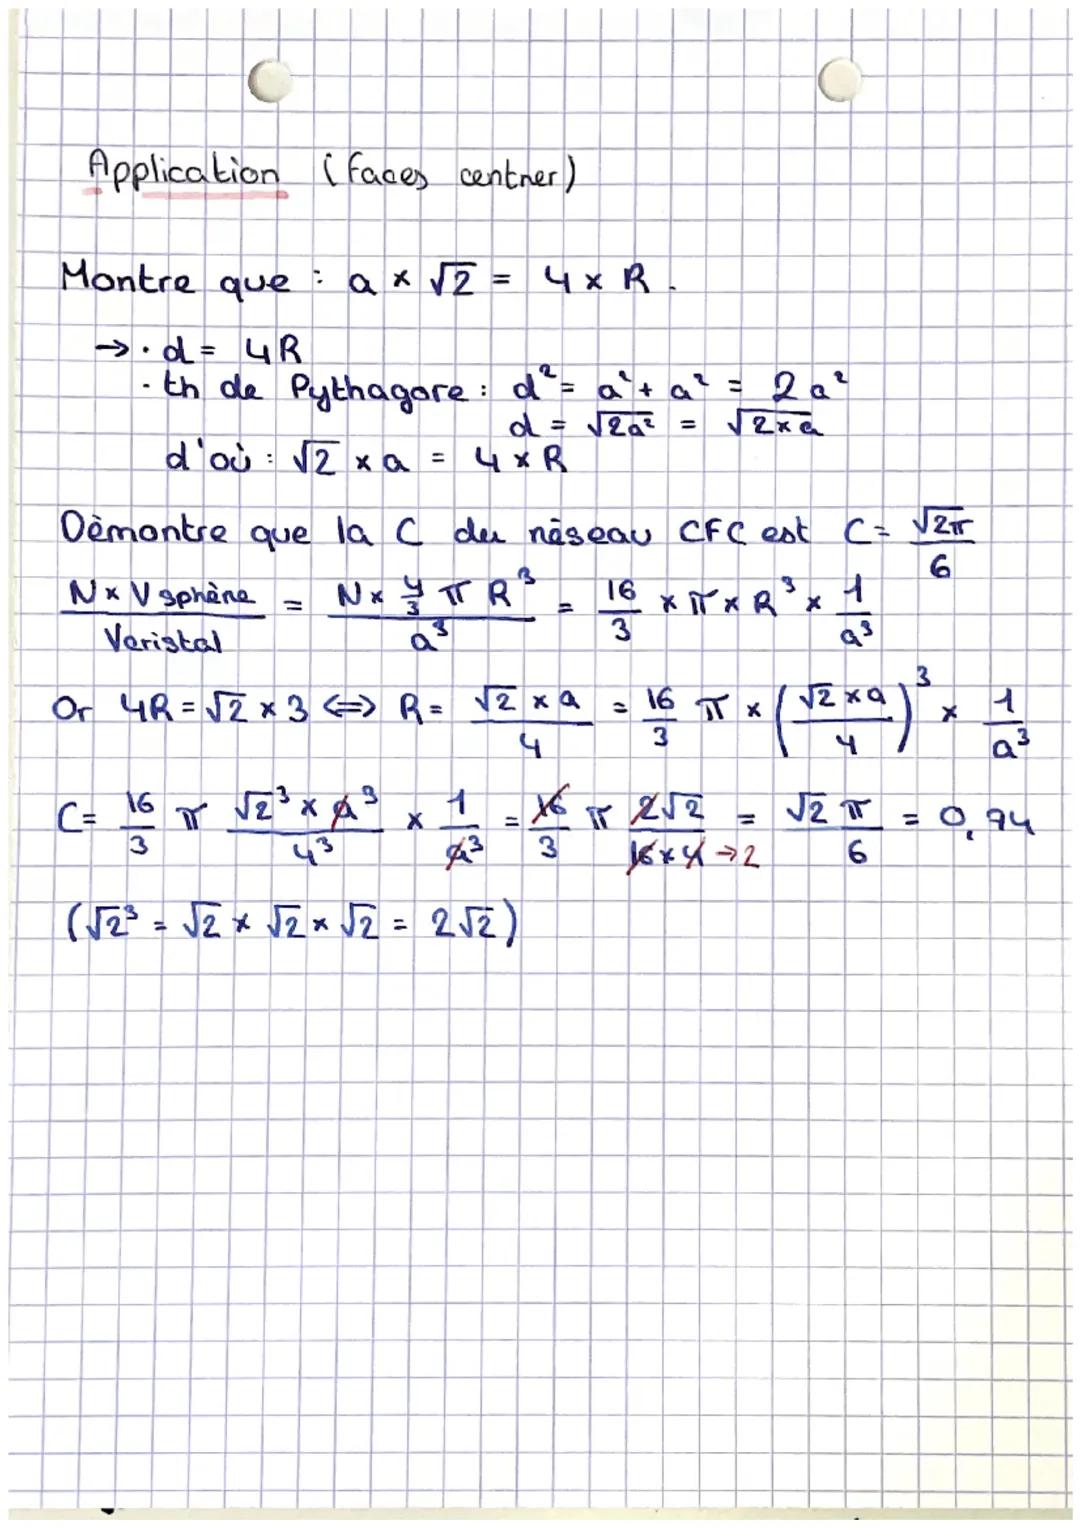 Application (faces centrer)
Montre que : a × √2 = 4 × R.
→ · d = 4R
· th de Pythagore : d² = a² + a² = 2a²
d = √2a² = √2×a
d'où : √2 × a = 4 × R
Dèmontre que la C du réseau CFC est C = √2π/6
N × V sphère / Vcristal = N × 4/3 π R³ / a³ = 16/3 × π × R³ × 1/a³
Or 4R = √2 × 3 ⟺ R = √2 × a / 4 = 16/3 π × (√2 × a / 4)³ × 1/a³
C = 16/3 π √2³ × a³ / 4³ × 1/a³ = 16/3 π 2√2 / 16×4 → 2 = √2 π / 6 = 0,94
(√2³ = √2 × √2 × √2 = 2√2)